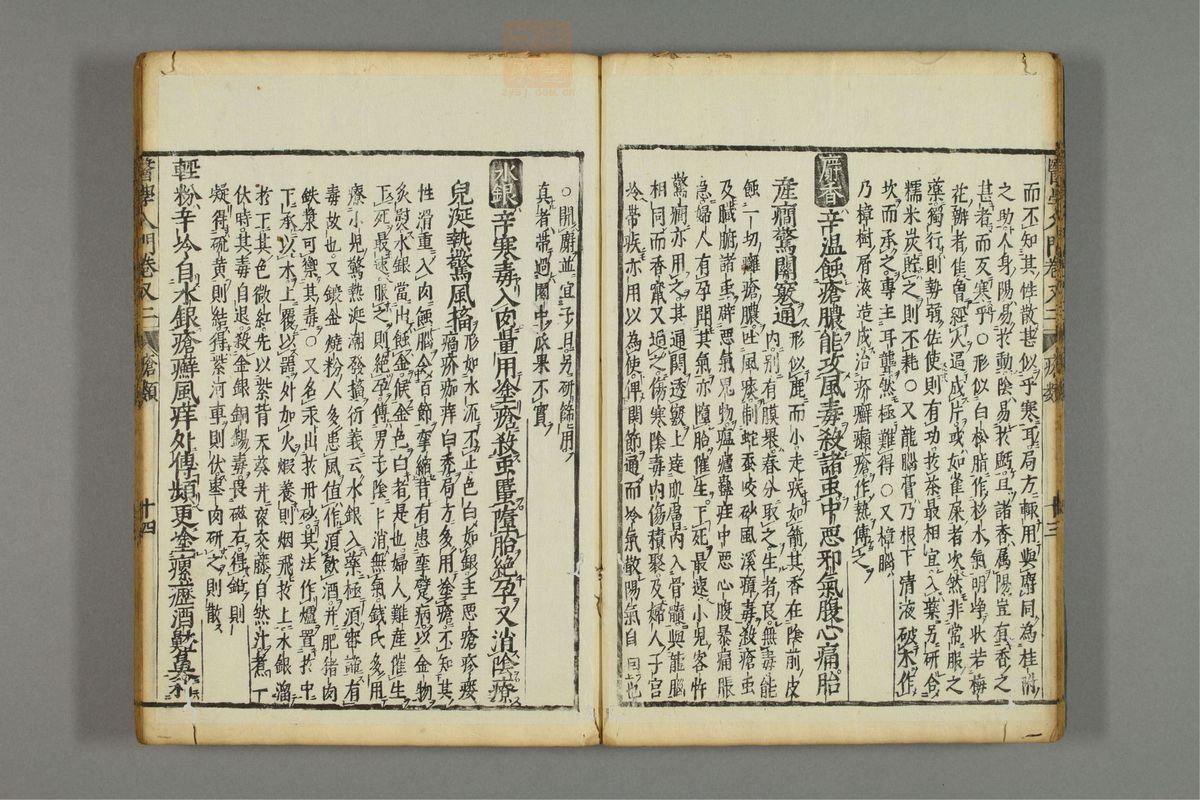 而不知其性散甚似乎寒耳局方輒用與麝同為桂附
之助人身陽易於動陰易於虧且諸香屬陽豈有香之
甚者而反寒乎○形似白松脂作杉木氣明淨狀若梅
花辦者佳曽經火逼成片或如雀屎者次然非常服之
藥獨行則勢弱佐使則有功於茶最相宜入藥另研合
糯米炭貯之則不耗○又龍腦膏乃根下清液破木作
坎而承之專主耳聾然極難得○又樟腦
乃樟樹屑液造成治疥癬癩瘡作熱傅之
麝香辛温蝕瘡膿能攻風毒殺諸虫中惡邪氣腹心痛胎
産癎驚關竅通
形似鹿而小走疾如箭其香在陰前皮
内別有膜畢春分取之生者良無毒能
蝕一切癰瘡膿吐風痰制蛇蚕咬砂風溪瘴毒殺瘡虫
及臟腑諸虫辟惡氣鬼物瘟瘧蠱疰中惡心腹暴痛脹
急婦人有孕聞其氣亦墮胎催生下死最速小兒客忤
驚癎亦用之其通関透竅上達肌膚内入骨髓與龍腦
相同而香竄又過之傷寒陰毒内傷積聚及婦人子宫
冷帶疾亦用以為使俾関節通而冷氣散陽氣自回也
醫學入門卷又二
瘡類
十三
○開麝並宜子日另研篩用
真者帯過園中瓜果不實
水銀辛寒毒入肉量用塗瘡殺虫虱墮胎絶孕又消陰療
兒涎熱驚風搐
形如水流不止色白如銀主惡瘡疹瘻
疥痂痒白禿局方多用塗瘡不知其
性滑重入肉蝕腦令百節攣縮昔有患攣躄病以金物
炙熨水銀當出蝕金候金色白者是也婦人難産催生
下死最速服之則絶孕傅男子陰卜消無氣錢氏多用
療小兒驚熱涎潮發搐衍義云水銀入藥極須審謹有
毒故也又鍛金燒粉人多患風値作須飲酒并肥猪肉
鉄漿可禦其毒○又名汞出於丹砂其法作爐置於中
下承以水上覆以器外加火煅養則烟飛於上水銀溜
於下其色微紅先以紫背天葵并夜交藤自然汁煮一
伏時其毒自退殺金銀銅錫毒畏磁石得鉛則
凝得硫黄則結得紫河車則伏棗肉研之則散
輕粉辛冷自水銀瘡癬風痒外傅頻更塗瘰癧酒齇鼻
醫學入門卷又二
瘡類
十四